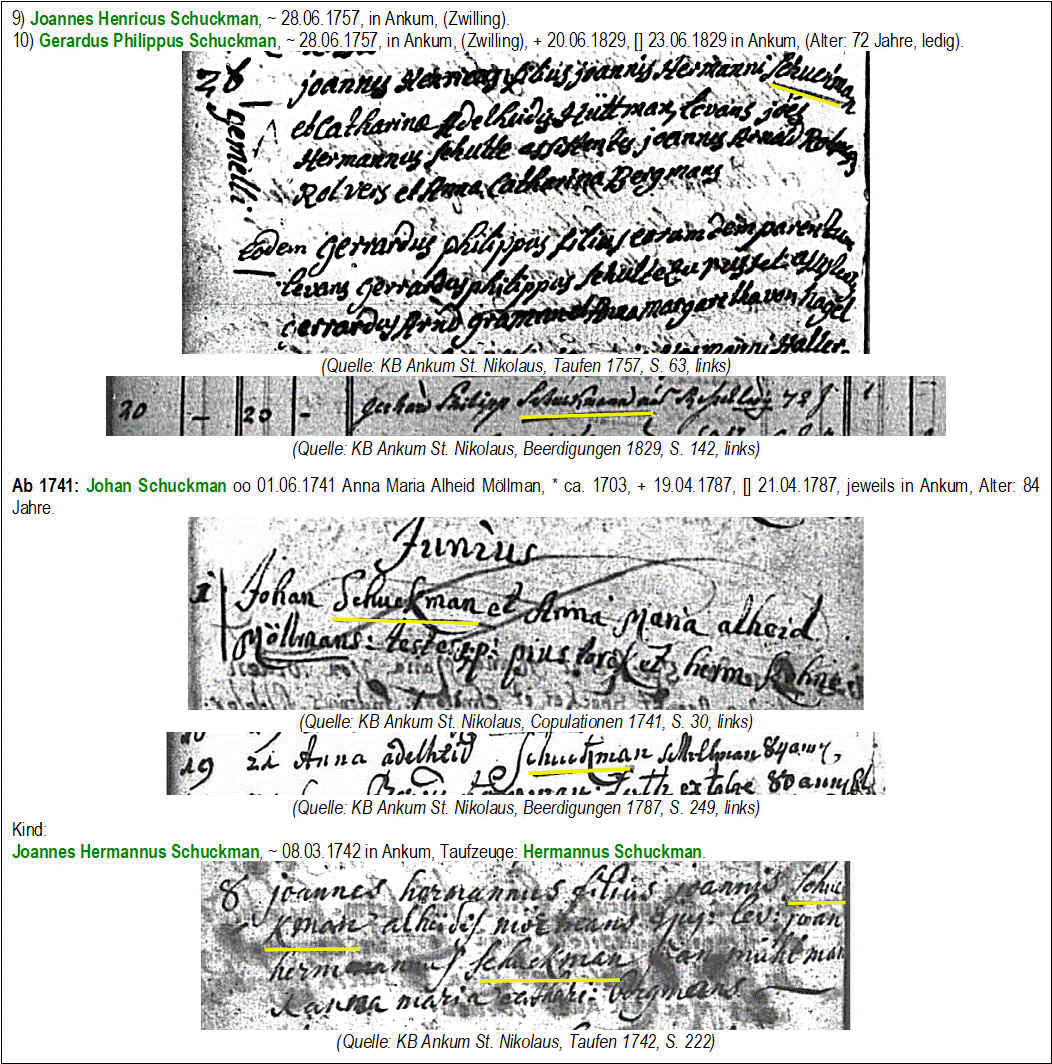 9) Joannes Henricus Schuckman, ~ 28.06.1757, in Ankum, (Zwilling).
10) Gerardus Philippus Schuckman, ~ 28.06.1757, in Ankum, (Zwilling), + 20.06.1829, [] 23.06.1829 in Ankum, (Alter: 72 Jahre, ledig).
28 joannes filius joannis Hermanni
gemelli
et Catharina Adelheidis Hüttman, levans joes
Hermannus Schulte assistentes joannes Arnd
Rolvers et Anna Catharina Bergmans
Eodem Gerrardus philippus filius eorumdem parentum
levans Gerrardus philippus Schulte
Gerrardus Arnd et Anna margaretha von hagel
(Quelle: KB Ankum St. Nikolaus, Taufen 1757, S. 63, links)
20 – 20 – Philipp
(Quelle: KB Ankum St. Nikolaus, Beerdigungen 1829, S. 142, links)
Ab 1741: Johan Schuckman oo 01.06.1741 Anna Maria Alheid Möllman, * ca. 1703, + 19.04.1787, [] 21.04.1787, jeweils in Ankum, Alter: 84
Jahre.
Junius
1 Johan Schuckman et Anna Maria alheid
Möllmans: et herm
(Quelle: KB Ankum St. Nikolaus, Copulationen 1741, S. 30, links)
19 21 Anna adelheid Schuckman Mollman 84
80
(Quelle: KB Ankum St. Nikolaus, Beerdigungen 1787, S. 249, links)
Kind:
Joannes Hermannus Schuckman, ~ 08.03.1742 in Ankum, Taufzeuge: Hermannus Schuckman.
8 joannes hermannus filius joannis Schuc
kman alheidis lev: joan
hermannus Schuckman
& anna maria cathari: bergmans
(Quelle: KB Ankum St. Nikolaus, Taufen 1742, S. 222)